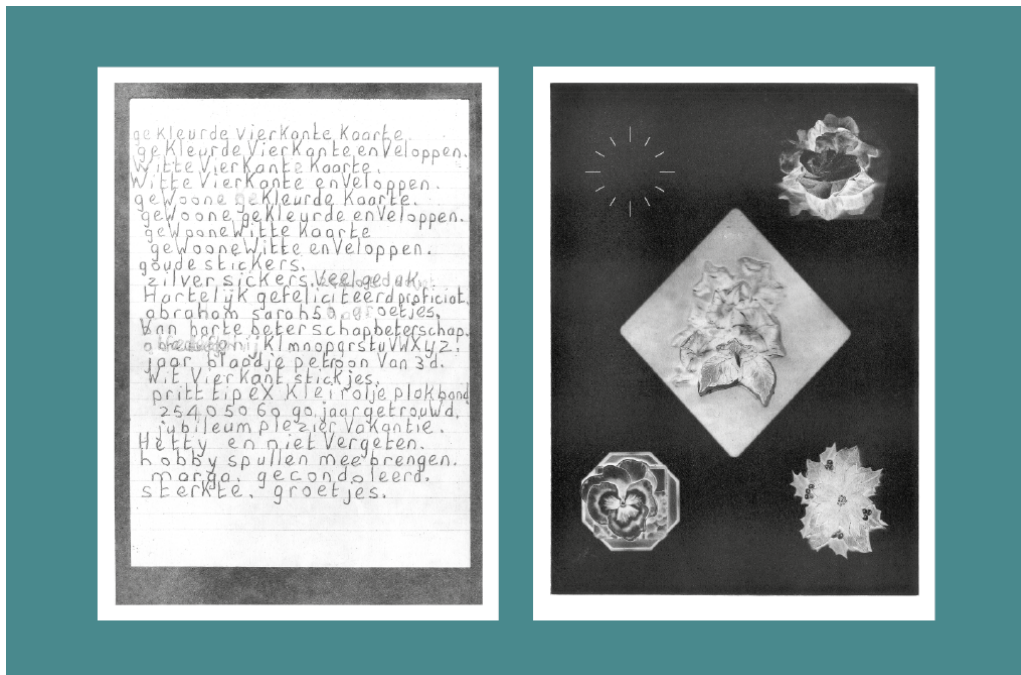 geKleurde VierKante Kaarte.
geKleurde VierKante enVeloppen.
Witte VierKante Kaarte.
Witte VierKante enVeloppen.
geWoone geKleurde Kaarte.
geWoone geKleurde enVeloppen.
geWoone Witte Kaarte
geWoone Witte enVeloppen.
goude stickers.
zilver sickers. Veel geluk.
Hartelijk gefeliciteerd proficiat.
abraham sarah 50 groetjes.
Van harte beterschap beterschap.
KlmnopqrstuVWXyz.
jaar blaadje petroon Van 3d.
Wit Vier Kant stickjes.
pritt tipeX Klei rolje plakband
25 40 50 60 90 jaar getrouWd.
jubileum plezier VaKantie.
Hetty en niet Vergeten.
hobby spullen mee brengen.
marga. gecondoleerd.
sterkte. groetjes.